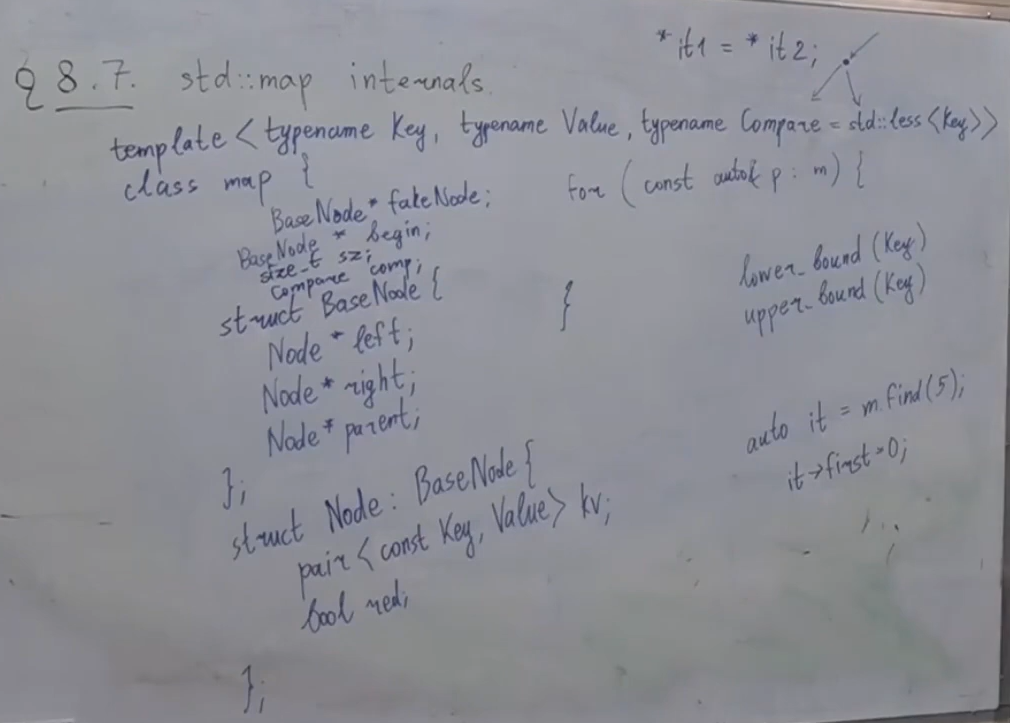 § 8.7. std::map internals.
*it1 = *it2;
template <typename Key, typename Value, typename Compare = std::less<Key>>
class map {
BaseNode* fakeNode;
BaseNode* begin;
size_t sz;
Compare comp;
struct BaseNode {
Node* left;
Node* right;
Node* parent;
};
struct Node: BaseNode {
pair<const Key, Value> kv;
bool red;
};
for (const auto& p : m) {
}
lower_bound(Key)
upper_bound(Key)
auto it = m.find(5);
it->first=0;